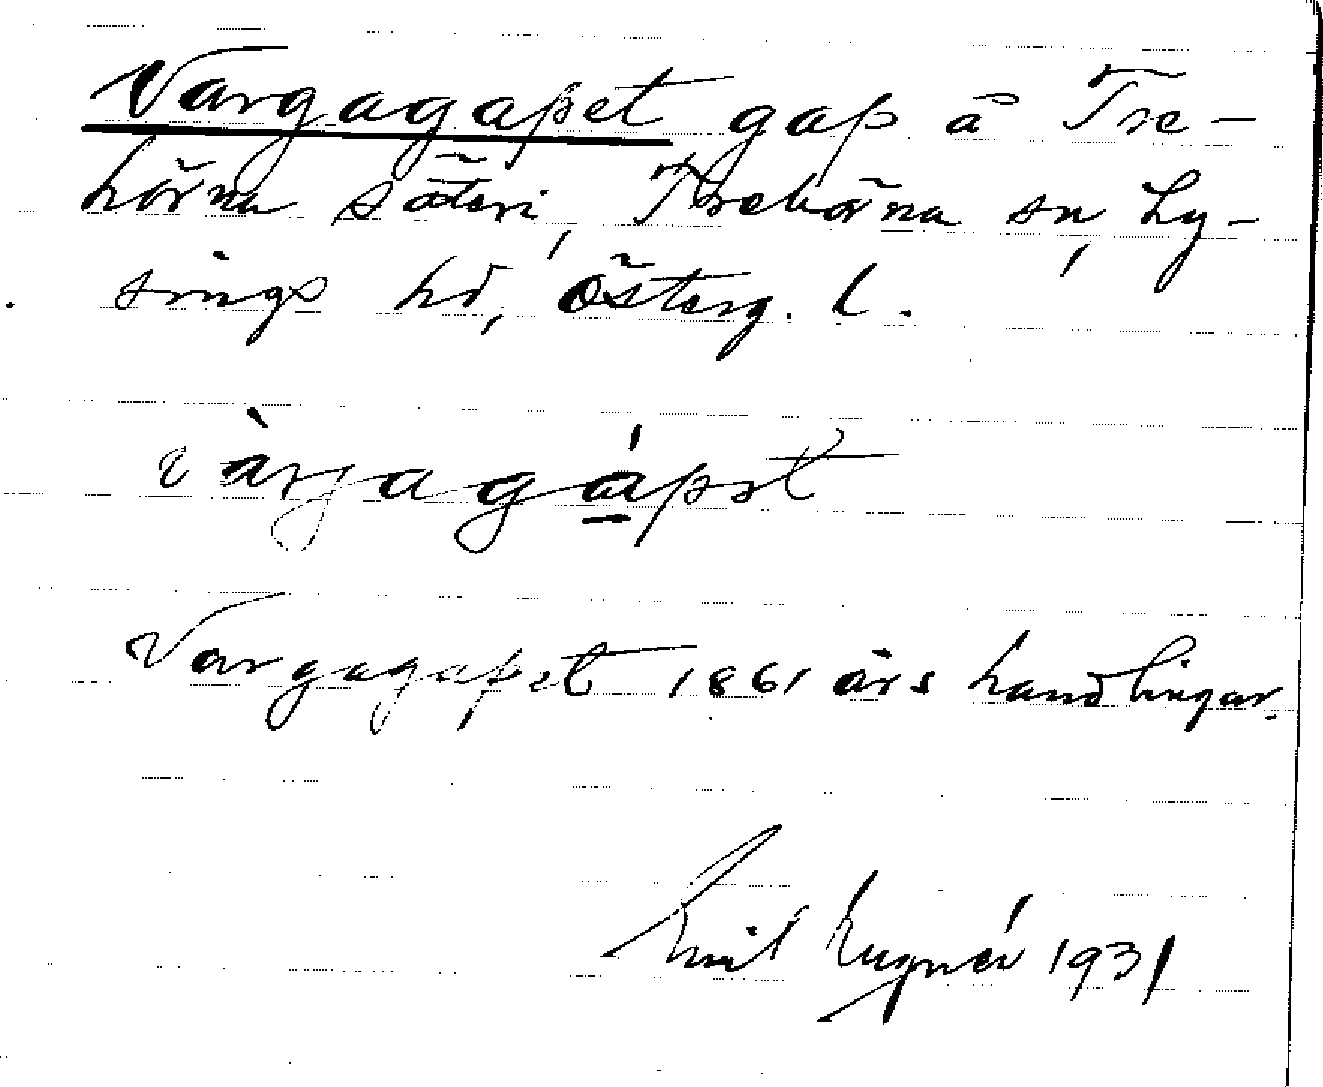 Vargagapet gap å Tre-
hörna säteri, Trehörna sn, Ly-
sings hd, Österg. l.
vàrgagápət
Vargagapet 1861 års handlingar.
Emil 1931